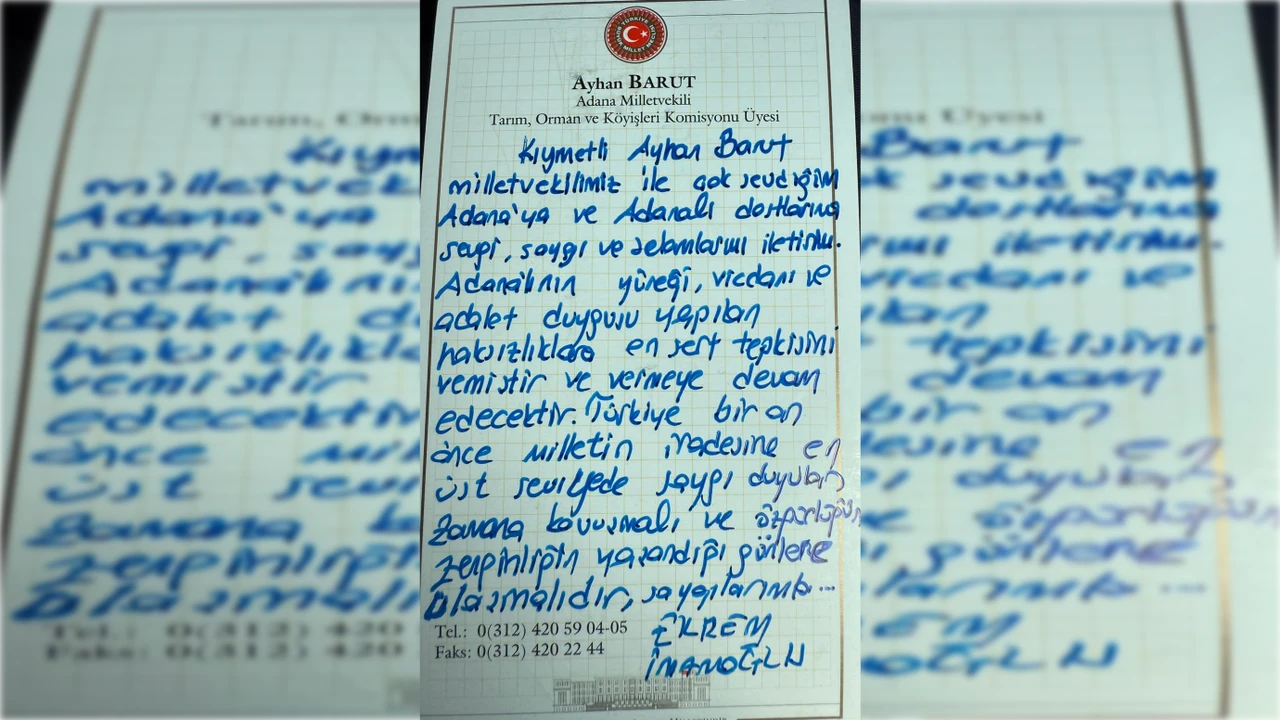 Ayhan BARUT
Adana Milletvekili
Tarım, Orman ve Köyişleri Komisyonu Üyesi
Kıymetli Ayhan Barut
milletvekilimiz ile çok sevdiğim
Adana'ya ve Adanalı dostlarıma
sevgi, saygı ve selamlarımı iletirim.
Adanalının yüreği, vicdanı ve
adalet duygusu yapılan
haksızlıklara en sert tepkisini
vermiştir ve vermeye devam
edecektir. Türkiye bir an
önce milletin iradesine en
üst seviyede saygı duyulan
zamana kavuşmalı ve özgürlüğün,
zenginliğin yaşandığı günlere
ulaşmalıdır, saygılarımla...
EKREM
İMAMOĞLU
Tel.: 0(312) 420 59 04-05
Faks: 0(312) 420 22 44